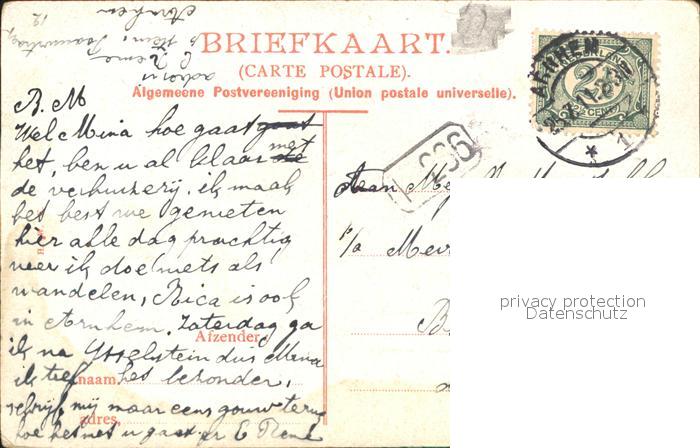 BRIEFKAART.
(CARTE POSTALE).
Algemeene Postvereeniging (Union postale universelle).
Arnhem
12
adres
B. M
Wel Mina hoe gaat gaat
het, ben u al klaar met
de verhuizerij. ik maak
het best we genieten
hier alle dag prachtig
weer ik doe niets als
wandelen, Rica is ook
in Arnhem. Zaterdag ga
ik na IJsselstein dus Mina
ik tref het bezonder,
schrijf mij maar eens gouw terug
hoe het met u gaat
Afzender,
naam
adres,
ARNHEM
1
NEDERLAND
2½
2½ CENT
666
Aan Me
p/a Mev
B
privacy protection
Datenschutz